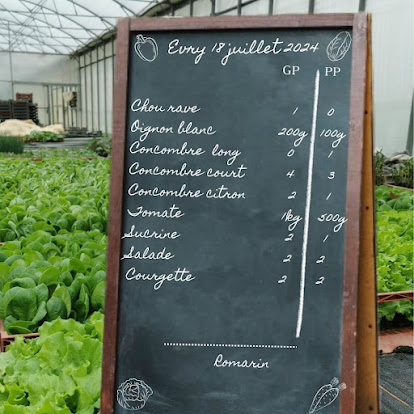 Evry 18 juillet 2024
GP PP
Chou rave 1 0
Oignon blanc 200g 100g
Concombre long 0 1
Concombre court 4 3
Concombre citron 2 1
Tomate 1kg 500g
Sucrine 2 1
Salade 2 2
Courgette 2 2
Romarin